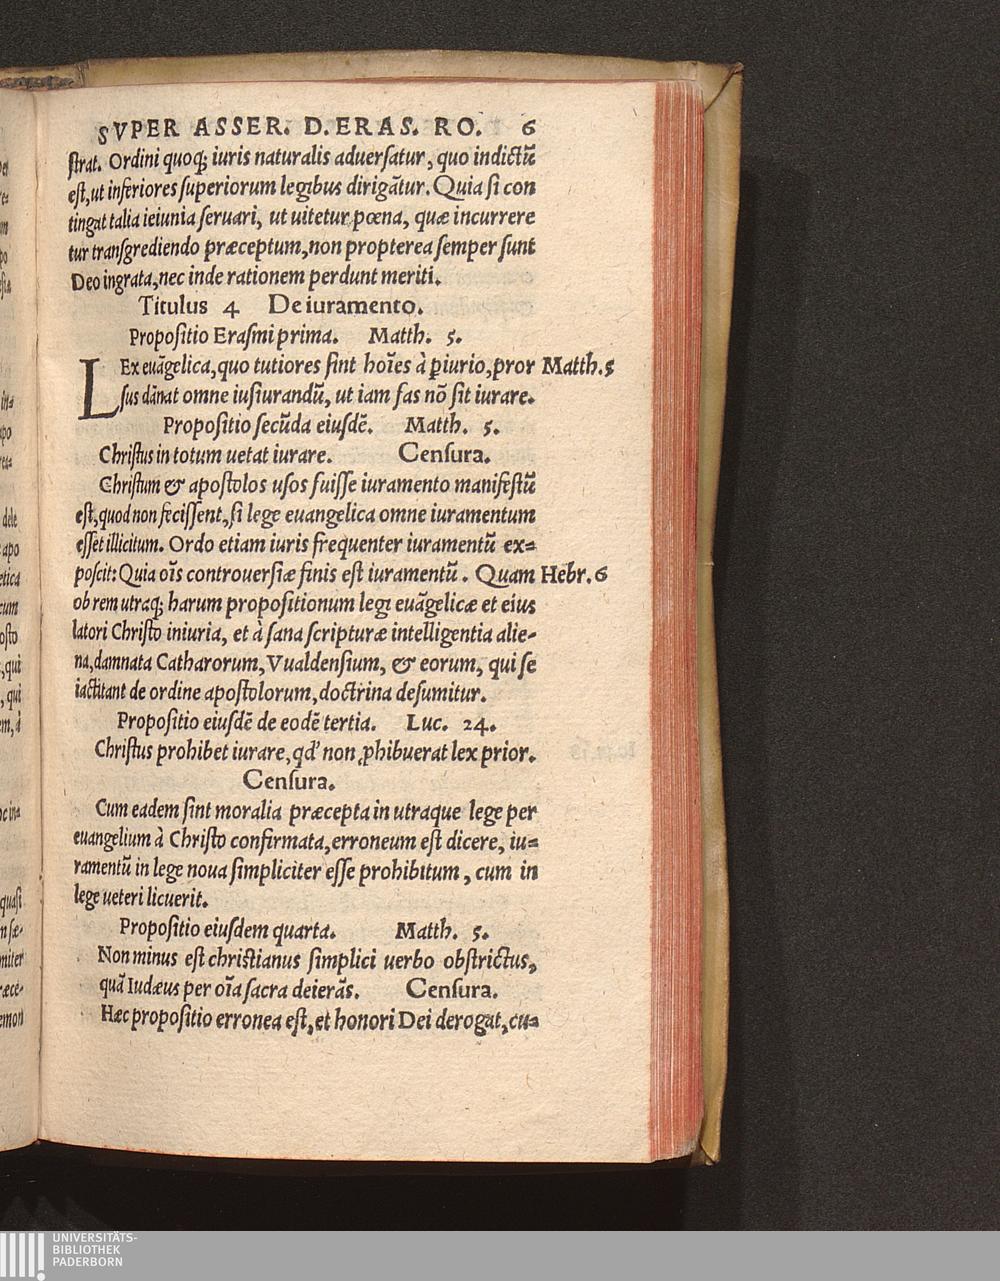 SVPER ASSER. D. ERAS. RO. 6
strat. Ordini quoq; iuris naturalis aduersatur, quo indictũ
est, ut inferiores superiorum legibus dirigãtur. Quia si con
tingat talia ieiunia seruari, ut uitetur pœna, quæ incurrere
tur transgrediendo præceptum, non propterea semper sunt
Deo ingrata, nec inde rationem perdunt meriti.
Titulus 4 De iuramento.
Propositio Erasmi prima. Matth. 5.
LEx euãgelica, quo tutiores sint hoĩes à ꝑiurio, pror Matth. 5
sus dãnat omne iusiurandũ, ut iam fas nõ sit iurare.
Propositio secũda eiusdẽ. Matth. 5.
Christus in totum uetat iurare. Censura.
Christum & apostolos usos fuisse iuramento manifestũ
est, quod non fecissent, si lege euangelica omne iuramentum
esset illicitum. Ordo etiam iuris frequenter iuramentũ ex=
poscit: Quia oĩs controuersiæ finis est iuramentũ. Quam Hebr. 6
ob rem utraq; harum propositionum legi euãgelicæ et eius
latori Christo iniuria, et à sana scripturæ intelligentia alie-
na, damnata Catharorum, Vualdensium, & eorum, qui se
iactitant de ordine apostolorum, doctrina desumitur.
Propositio eiusdẽ de eodẽ tertia. Luc. 24.
Christus prohibet iurare, qd' non ꝓhibuerat lex prior.
Censura.
Cum eadem sint moralia præcepta in utraque lege per
euangelium à Christo confirmata, erroneum est dicere, iu=
ramentũ in lege noua simpliciter esse prohibitum, cum in
lege ueteri licuerit.
Propositio eiusdem quarta. Matth. 5.
Non minus est christianus simplici uerbo obstrictus,
quã Iudæus per oĩa sacra deierãs. Censura.
Hæc propositio erronea est, et honori Dei derogat, cu=
UNIVERSITÄTS-
BIBLIOTHEK
PADERBORN